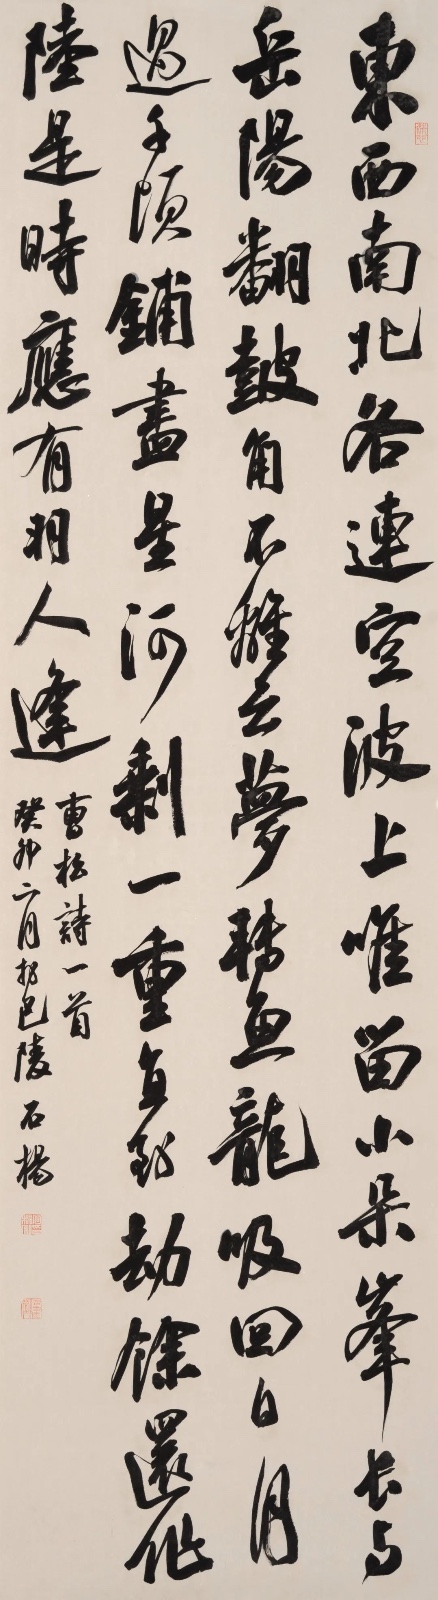 東西南北各連空波上唯留小朵峯長与
岳陽翻皷角不離云夢轉魚龍吸回日月
過千頃鋪盡星河剩一重直到劫餘還作
陸是時應有羽人逢
曹松詩一首
癸卯二月於巴陵石楊